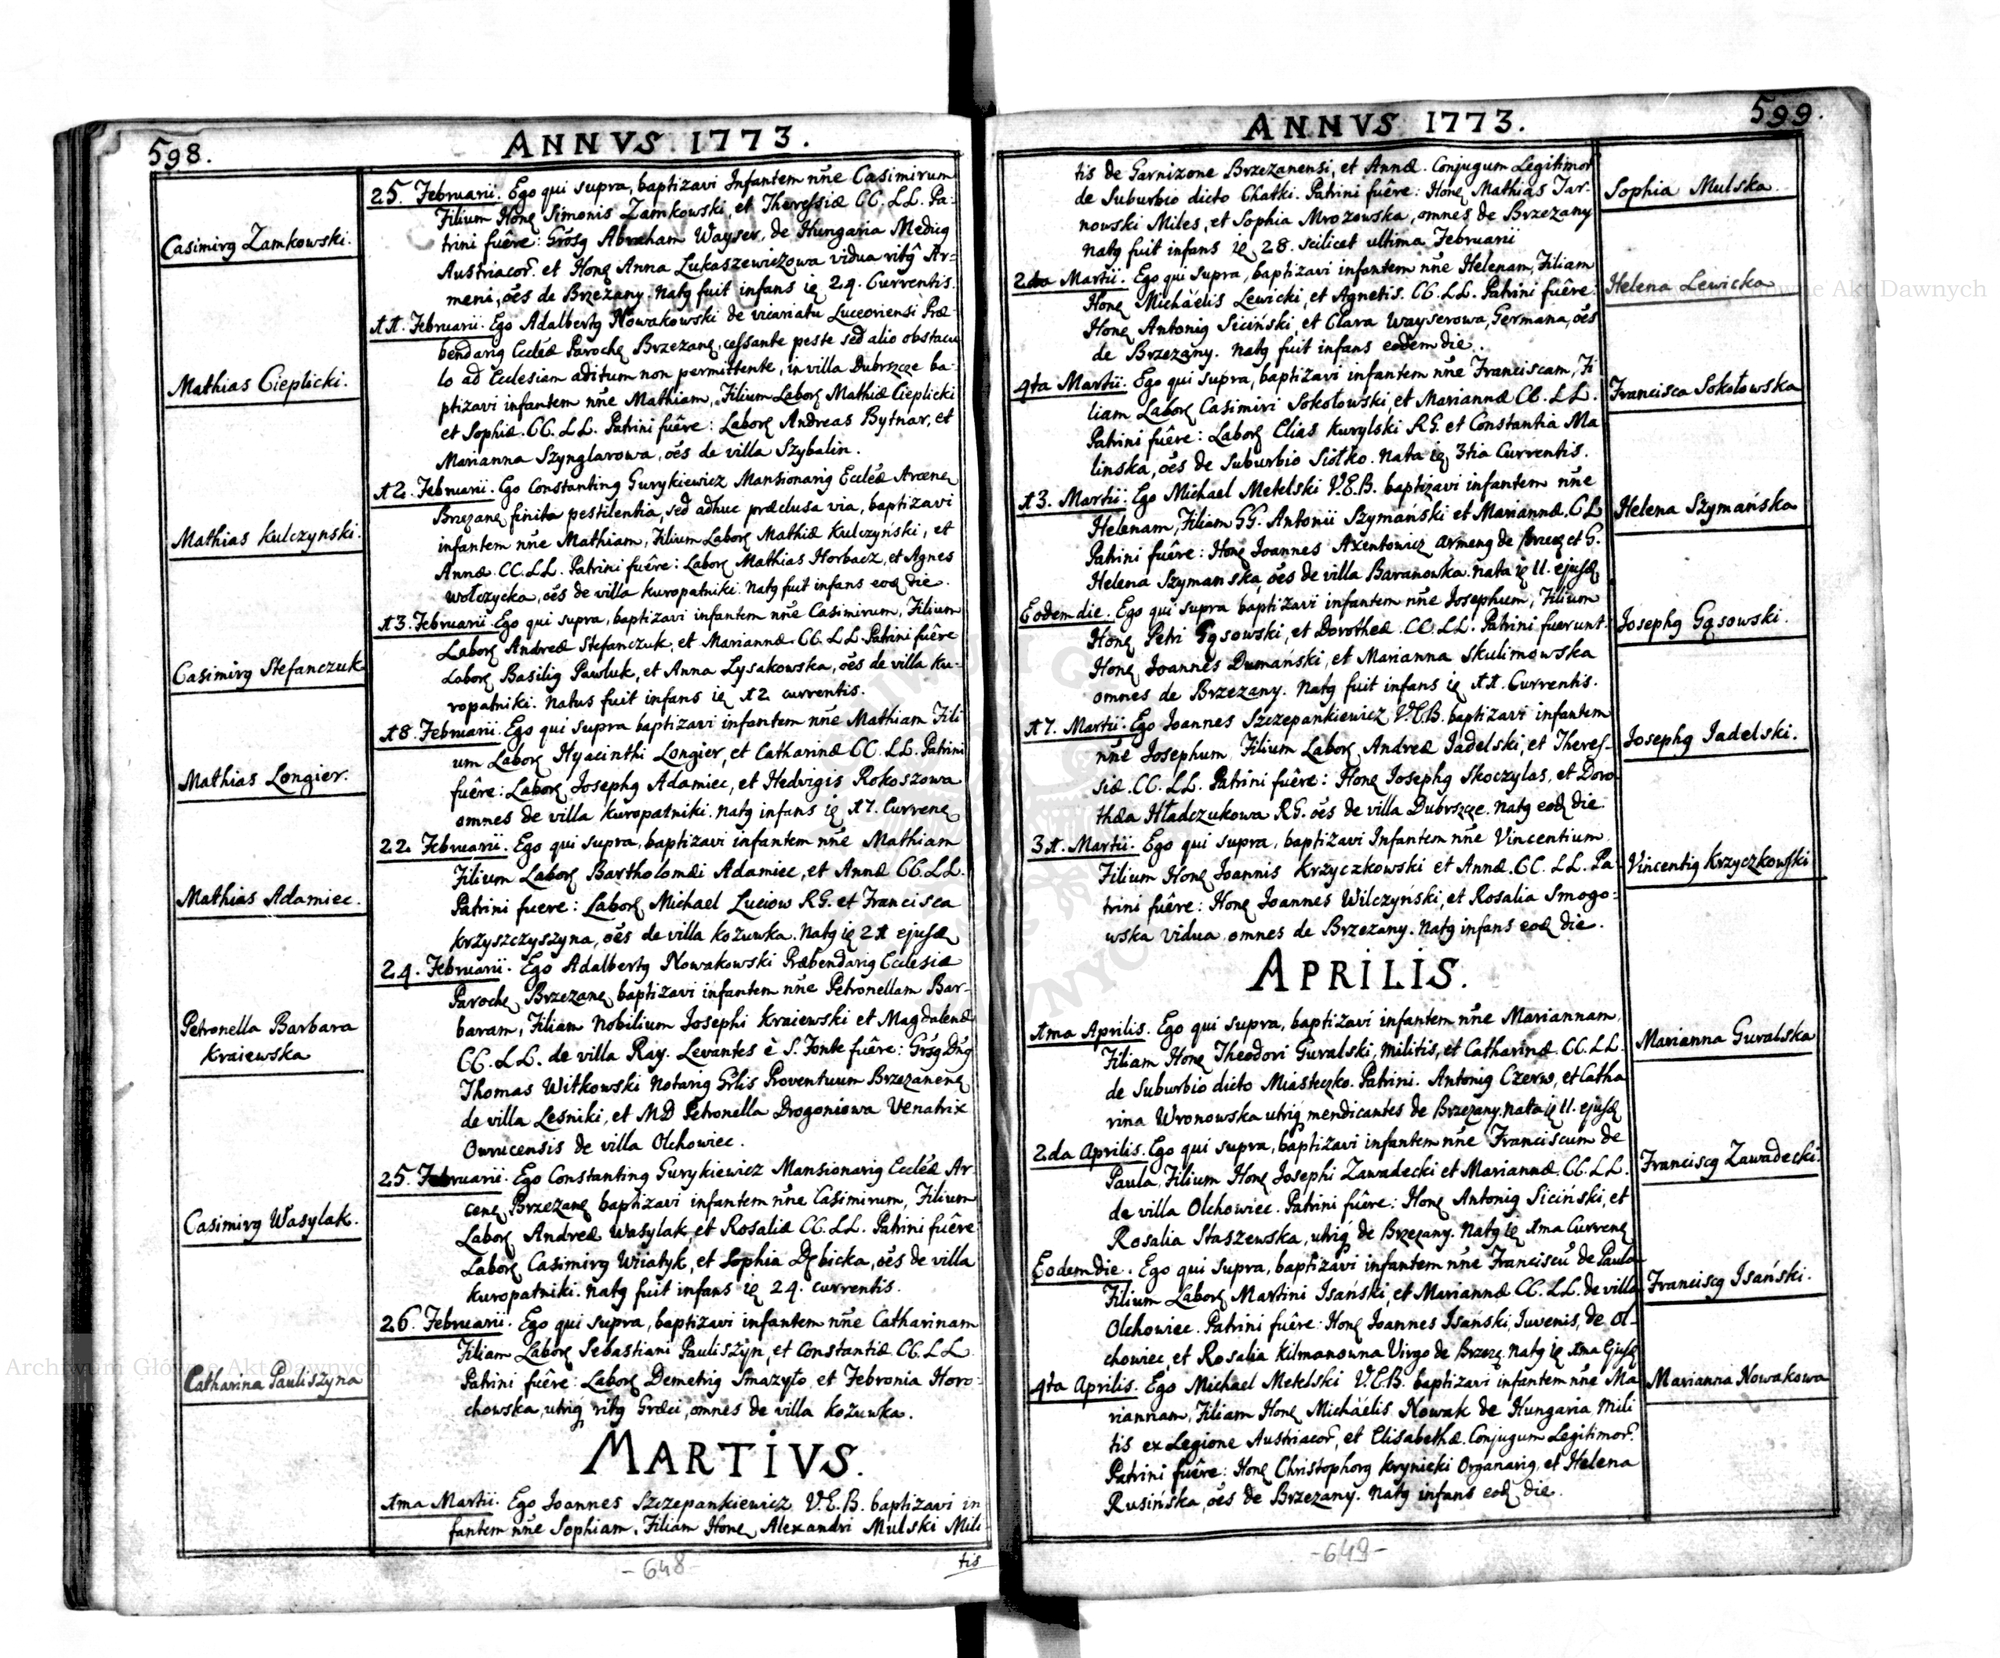 598.
ANNVS 1773.
Casimirꝯ Zamkowski.
Mathias Cieplicki.
Mathias Kulczynski.
Casimirꝯ Stefanczuk
Mathias Longier.
Mathias Adamiec.
Petronella Barbara
Kraiewska
Casimirꝯ Wasylak.
Catharina Pauliszyna
25. Februarii. Ego qui supra, baptizavi Infantem nñe Casimirum
Filium Honꝯ Simonis Zamkowski, et Theressiæ CC. LL. Pa-
trini fuêre: Grōsꝯ Abraham Wayser, de Hungaria Medicꝯ
Austriacor. et Honꝯ Anna Lukaszewiczowa vidua ritꝯ Ar-
meni, oẽs de Brzezany. Natꝯ fuit infans iꝯ 24. Currentis.
11. Februarii. Ego Adalbertꝯ Nowakowski de vicariatu Luceoriensi Præ-
bendariꝯ Eccleæ Parochꝯ Brzezanꝯ, cessante peste sed alio obstacu
lo ad Eclesiam aditum non permittente, in villa Dubrszcze ba-
ptizavi infantem nñe Mathiam, Filium Laborꝯ Mathiæ Cieplicki
et Sophiæ. CC. LL. Patrini fuêre: Laborꝯ Andreas Bytnar, et
Marianna Szynglarowa, oẽs de villa Szybalin.
12. Februarii. Ego Constantinꝯ Gurykiewicz Mansionariꝯ Eccleæ Arcenꝯ
Brzezanꝯ finita pestilentia, sed adhuc præclusa via, baptizavi
infantem nñe Mathiam, Filium Laborꝯ Mathiæ Kulczyński, et
Annæ. CC. LL. Patrini fuêre: Laborꝯ Mathias Horbacz, et Agnes
Wolczycka, oẽs de villa Kuropatniki. Natꝯ fuit infans eodꝯ die.
13. Februarii. Ego qui supra, baptizavi infantem nñe Casimirum, Filium
Laborꝯ Andreæ Stefanczuk, et Mariannæ. CC. LL. Patrini fuêre
Laborꝯ Basiliꝯ Pawluk, et Anna Lysakowska, oẽs de villa Ku-
ropatniki. Natus fuit infans iꝯ 12 currentis.
18. Februarii. Ego qui supra baptizavi infantem nñe Mathiam Fili
um Laborꝯ Hyacinthi Longier, et Catharinæ CC. LL. Patrini
fuêre: Laborꝯ Josephꝯ Adamiec, et Hedvigis Rokoszowa
omnes de villa Kuropatniki. Natꝯ infans iꝯ 17. Currenꝯ
22. Februarii. Ego qui supra, baptizavi infantem nñe Mathiam
Filium Laborꝯ Bartholomæi Adamiec, et Annæ CC. LL.
Patrini fuere: Laborꝯ Michael Luciow RG. et Francisca
Krzyszczyszyna, oẽs de villa Kozuwka. Natꝯ iꝯ 21 ejusdꝯ
24. Februarii. Ego Adalbertꝯ Nowakowski Præbendariꝯ Ecclesiæ
Parochꝯ Brzezanꝯ baptizavi infantem nñe Petronellam Bar-
baram, Filiam Nobilium Josephi Kraiewski et Magdalenæ
CC. LL. de villa Ray. Levantes è S. Fonte fuêre: Grōsꝯ Dñꝯ
Thomas Witkowski Notariꝯ Grlis Proventuum Brzezanenꝯ
de villa Lesniki, et MD Petronella Drogoniowa Venatrix
Owrucensis de villa Olchowiec.
25. Februarii. Ego Constantinꝯ Gurykiewicz Mansionariꝯ Eccleæ Ar
cenꝯ Brzezanꝯ baptizavi infantem nñe Casimirum, Filium
Laborꝯ Andreæ Wasylak, et Rosaliæ CC. LL. Patrini fuêre
Laborꝯ Casimirꝯ Wiiatyk, et Sophia Dębicka, oẽs de villa
Kuropatniki. Natꝯ fuit infans iꝯ 24. currentis.
26. Februarii. Ego qui supra, baptizavi infantem nñe Catharinam
Filiam Laborꝯ Sebastiani Pauliszyn, et Constantiæ CC. LL.
Patrini fuêre: Laborꝯ Demetriꝯ Smazyło, et Febronia Horo-
chowska, utriꝯ ritꝯ Græci, omnes de villa Kozuwka.
MARTIVS.
1ma Martii. Ego Joannes Szczepankiewicz V.E.B. baptizavi in
fantem nñe Sophiam, Filiam Honꝯ Alexandri Mulski Mili
tis
-648-
ANNVS 1773.
599.
tis de Garnizone Brzezanensi, et Annæ. Conjugum Legitimor
de Suburbio dicto Chatki. Patrini fuêre: Honꝯ Mathias Tar-
nowski Miles, et Sophia Mrozowska, omnes de Brzezany
Natꝯ fuit infans iꝯ 28. scilicet ultima Februarii
2da Martii. Ego qui supra, baptizavi infantem nñe Helenam, Filiam
Honꝯ Michaëlis Lewicki, et Agnetis. CC. LL. Patrini fuêre:
Honꝯ Antoniꝯ Siciński, et Clara Wayserowa, Germana, oẽs
de Brzezany. Natꝯ fuit infans eodem die.
4ta Martii. Ego qui supra, baptizavi infantem nñe Franciscam, Fi
liam Laborꝯ Casimiri Sokołowski, et Mariannæ CC. LL.
Patrini fuêre: Laborꝯ Elias Kurylski RG. et Constantia Ma
linska, oẽs de Suburbio Siołko. Nata iꝯ 3tia Currentis.
13. Martii. Ego Michael Metelski V.E.B. baptizavi infantem nñe
Helenam, Filiam GG. Antonii Szymański et Mariannæ. CC LL
Patrini fuêre: Honꝯ Joannes Axentowicz Armenꝯ de Brzezꝯ et G.
Helena Szymanska, oẽs de villa Baranowka. Nata iꝯ 11. ejusdꝯ
Eodem die. Ego qui supra baptizavi infantem nñe Josephum, Filium
Honꝯ Petri Gąsowski, et Dorotheæ. CC. LL. Patrini fuerunt:
Honꝯ Joannes Dumański, et Marianna Skulimowska
omnes de Brzezany. Natꝯ fuit infans iꝯ 11. Currentis.
17. Martii. Ego Joannes Szczepankiewicz V.E.B. baptizavi infantem
nñe Josephum, Filium Laborꝯ Andreæ Jadelski, et Theres-
siæ. CC. LL. Patrini fuêre: Honꝯ Josephꝯ Skoczylas, et Doro
thæa Hładczukowa RG. oẽs de villa Dubrszcze. Natꝯ eodꝯ die.
31. Martii. Ego qui supra, baptizavi Infantem nñe Vincentium
Filium Honꝯ Joannis Krzyczkowski et Annæ. CC. LL. Pa-
trini fuêre: Honꝯ Joannes Wilczyński, et Rosalia Smogo-
wska Vidua, omnes de Brzezany. Natꝯ infans eodꝯ die.
APRILIS.
1ma Aprilis. Ego qui supra, baptizavi infantem nñe Mariannam,
Filiam Honꝯ Theodori Guralski, Militis, et Catharinæ. CC. LL.
de Suburbio dicto Miasteczko. Patrini. Antoniꝯ Czerw, et Catha
rina Wronowska utriꝯ mendicantes de Brzezany. Nata iꝯ 11. ejusdꝯ
2da Aprilis. Ego qui supra, baptizavi infantem nñe Franciscum de
Paula, Filium Honꝯ Josephi Zawadecki et Mariannæ. CC. LL.
de villa Olchowiec. Patrini fuêre: Honꝯ Antoniꝯ Siciński, et
Rosalia Staszewska, utriꝯ de Brzezany. Natꝯ iꝯ 1ma Currenꝯ
Eodem die. Ego qui supra, baptizavi infantem nñe Franciscũ de Paula
Filium Laborꝯ Martini Isański, et Mariannæ CC. LL. de villa
Olchowiec. Patrini fuêre: Honꝯ Joannes Isański, Juvenis, de Ol-
chowiec, et Rosalia Kilmanowna Virgo de Brzezꝯ. Natꝯ iꝯ 1ma Ejusdꝯ
4ta Aprilis. Ego Michael Metelski V.E.B. baptizavi infantem nñe Ma
riannam, Filiam Honꝯ Michaëlis Nowak de Hungaria Mili
tis ex Legione Austriacor, et Elisabethæ. Conjugum Legitimor.
Patrini fuêre: Honꝯ Christophorꝯ Krynicki Organariꝯ, et Helena
Rusińska, oẽs de Brzezany. Natꝯ infans eodꝯ die.
Sophia Mulska.
Helena Lewicka
Francisca Sokołowska
Helena Szymańska
Josephꝯ Gąsowski.
Josephꝯ Jadelski.
Vincentiꝯ Krzyczkowski
Marianna Guralska
Franciscꝯ Zawadecki.
Franciscꝯ Isański.
Marianna Nowakowa
-649-
Archiwum Główne Akt Dawnych
Archiwum Główne Akt Dawnych